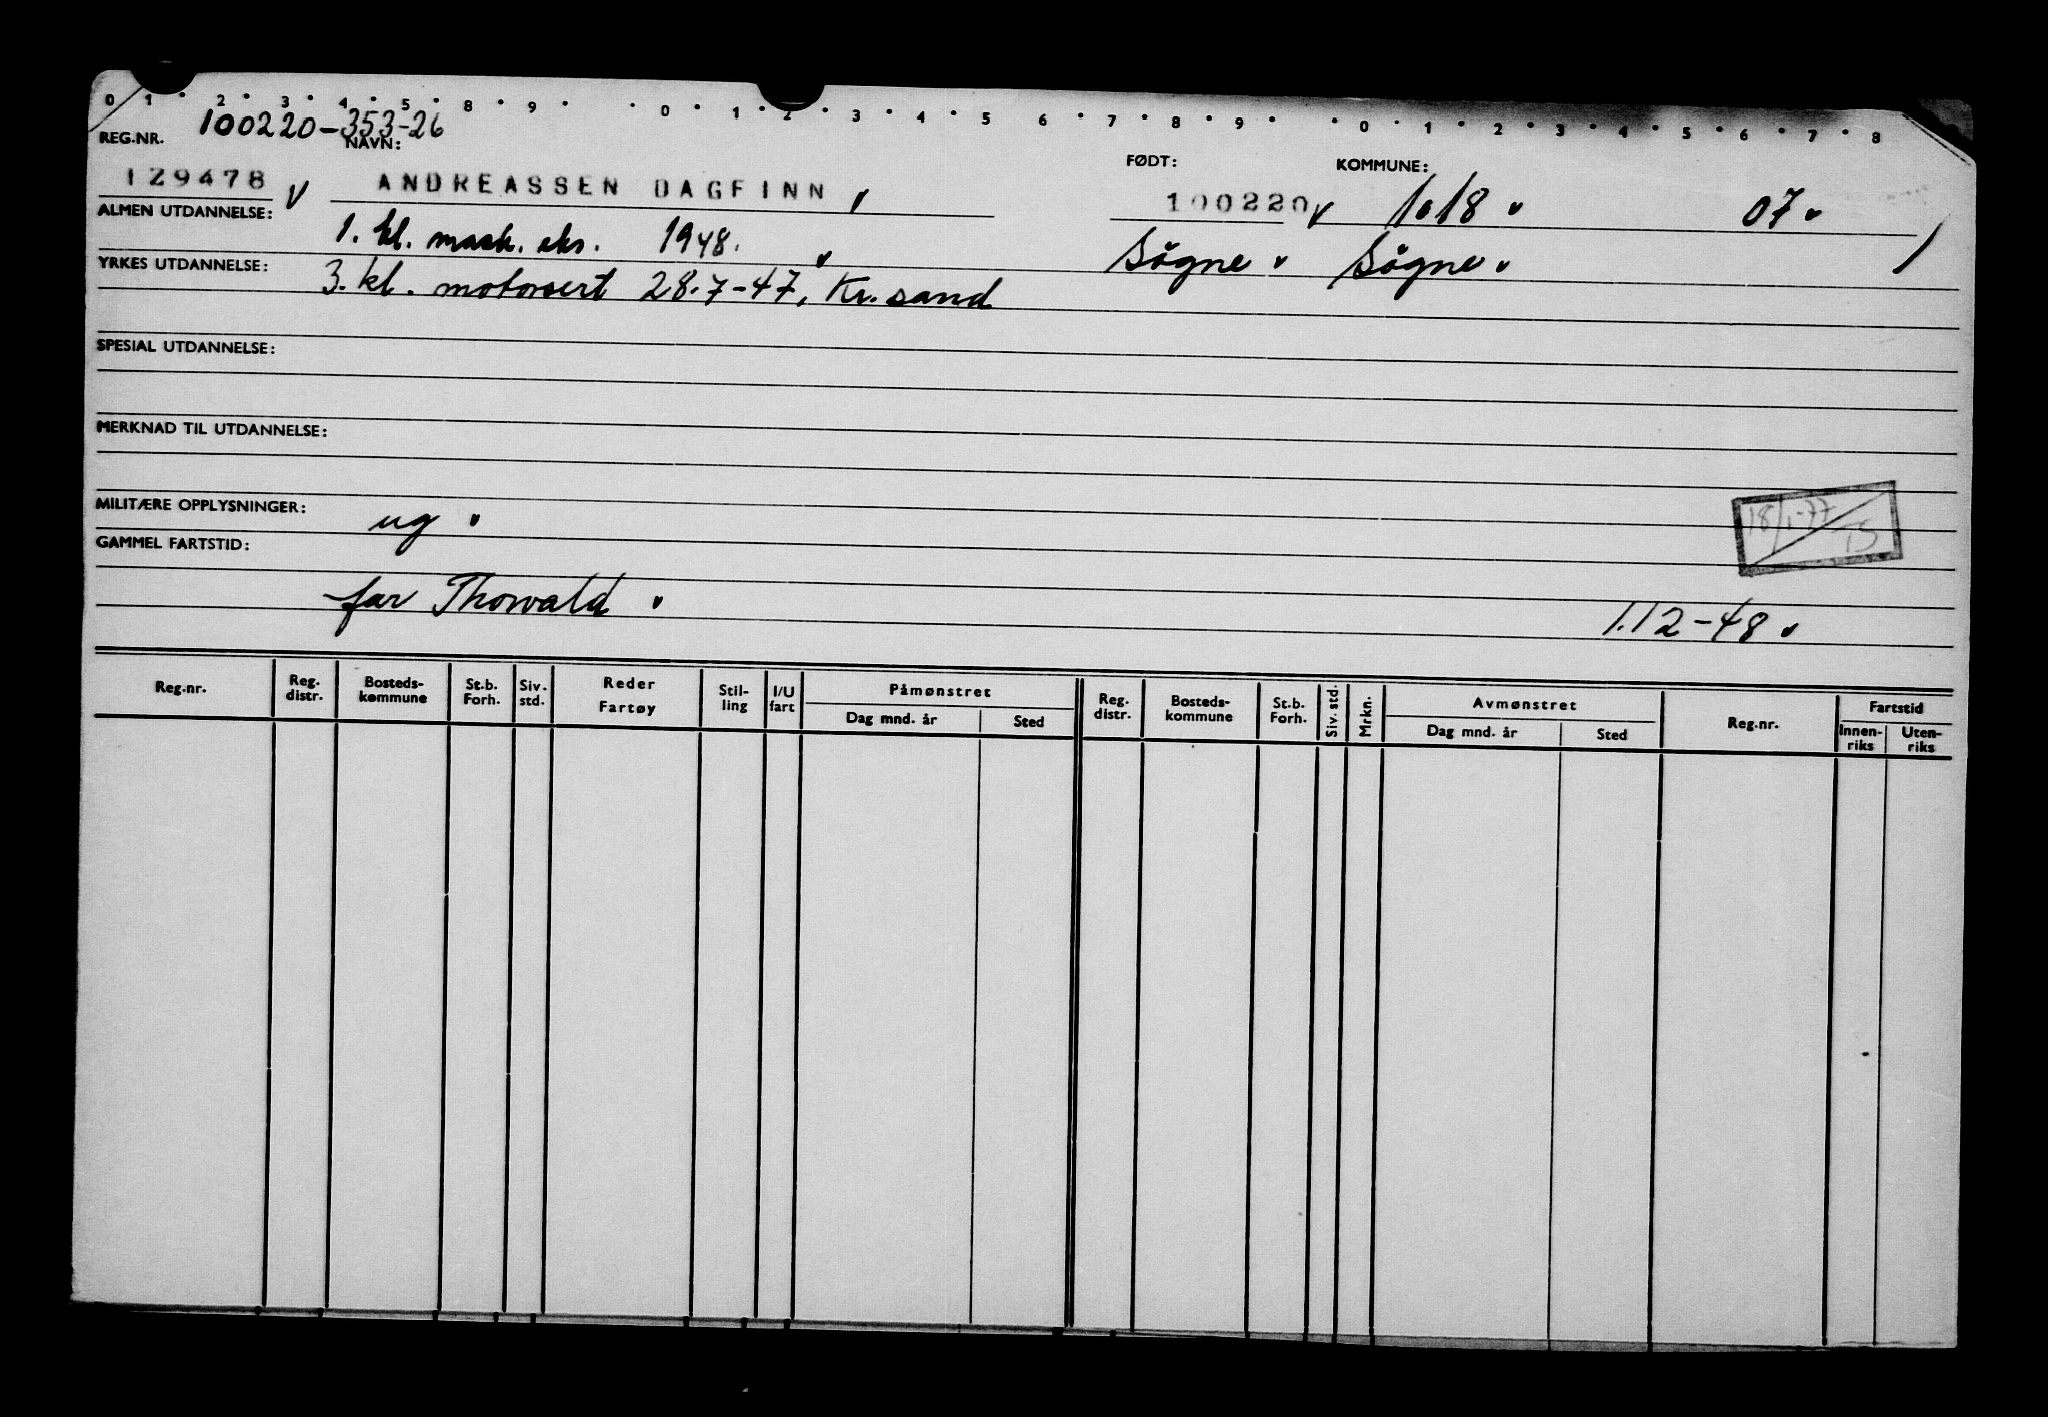 0 1 2 3 4 5 8 9 0 1 2 3 4 5 6 7 8 9 0 1 2 3 4 5 6 7 8
100220-353-26
REG.NR. NAVN: FØDT: KOMMUNE:
129478 ANDREASSEN DAGFINN 100220 1018 07
ALMEN UTDANNELSE: 1. kl. mask. eks. 1948. Søgne Søgne
YRKES UTDANNELSE: 3. kl. motorsert 28.7-47, Kr.sand
SPESIAL UTDANNELSE:
MERKNAD TIL UTDANNELSE:
MILITÆRE OPPLYSNINGER: ug
18/1-77
GAMMEL FARTSTID:
far Thorvald 1.12-48
Reg.nr. Reg. distr. Bosteds- kommune St.b. Forh. Siv. std. Reder Fartøy Stil- ling I/U fart Påmønstret Dag mnd. år Sted Reg. distr. Bosteds- kommune St.b. Forh. Siv. std. Mrkn. Avmønstret Dag mnd. år Sted Reg.nr. Fartstid Innen- riks Uten- riks